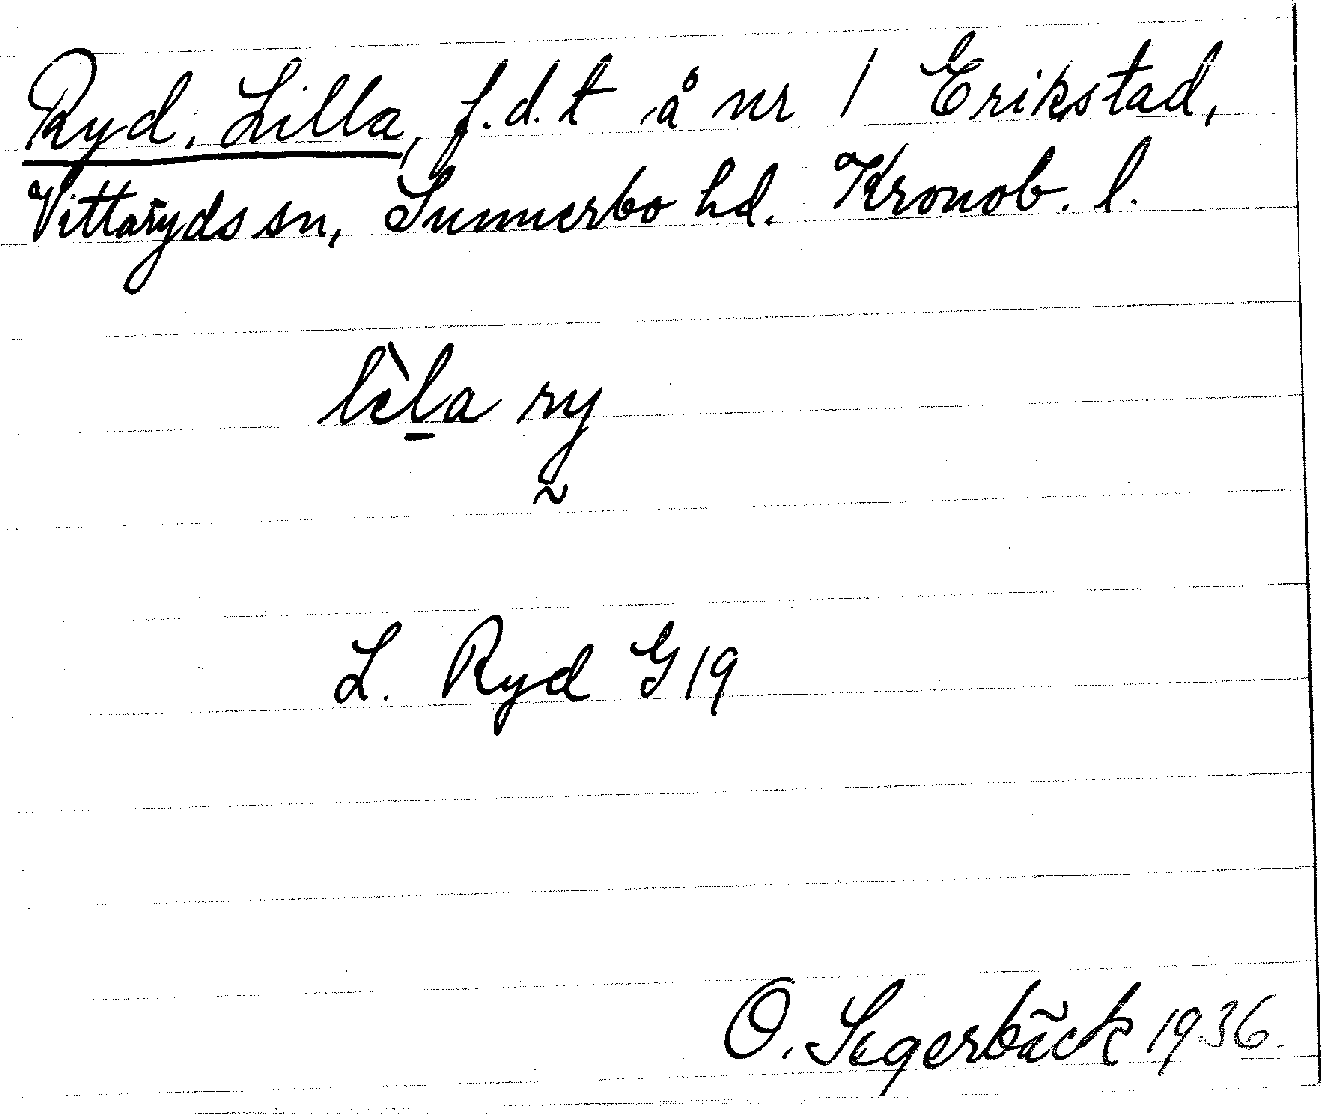 Ryd, Lilla, f.d.t å nr 1 Erikstad,
Vittaryds sn, Sunnerbo hd. Kronob. l.
lèl̲a ry̰
L. Ryd G19
O. Segerbäck 1936.